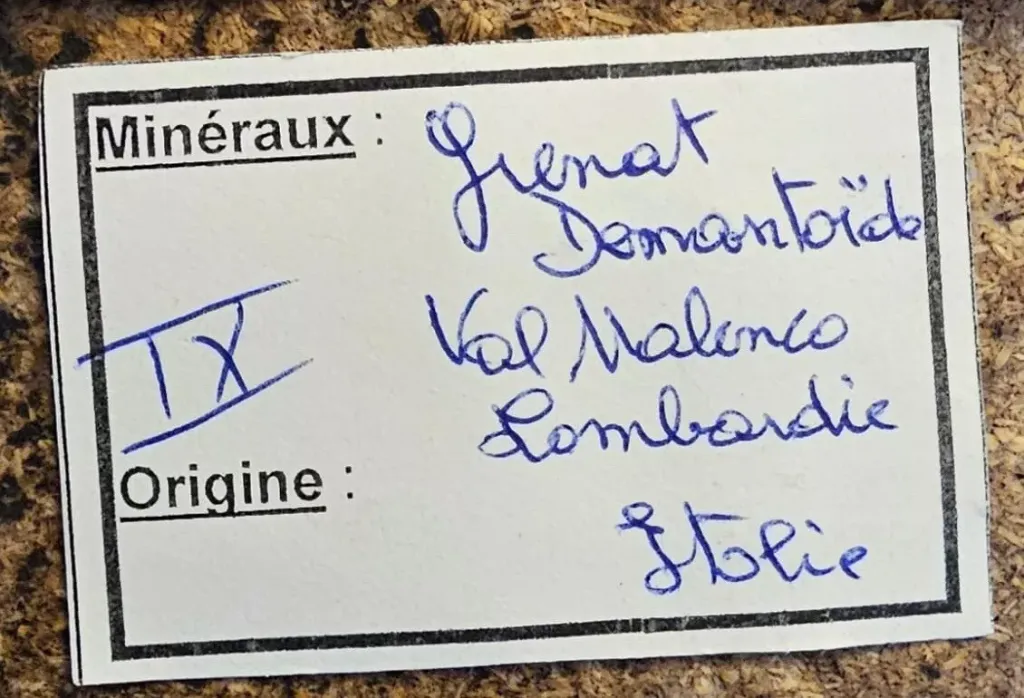 Minéraux : Grenat
Demantoïde
IX
Val Malenco
Lombardie
Origine :
Italie